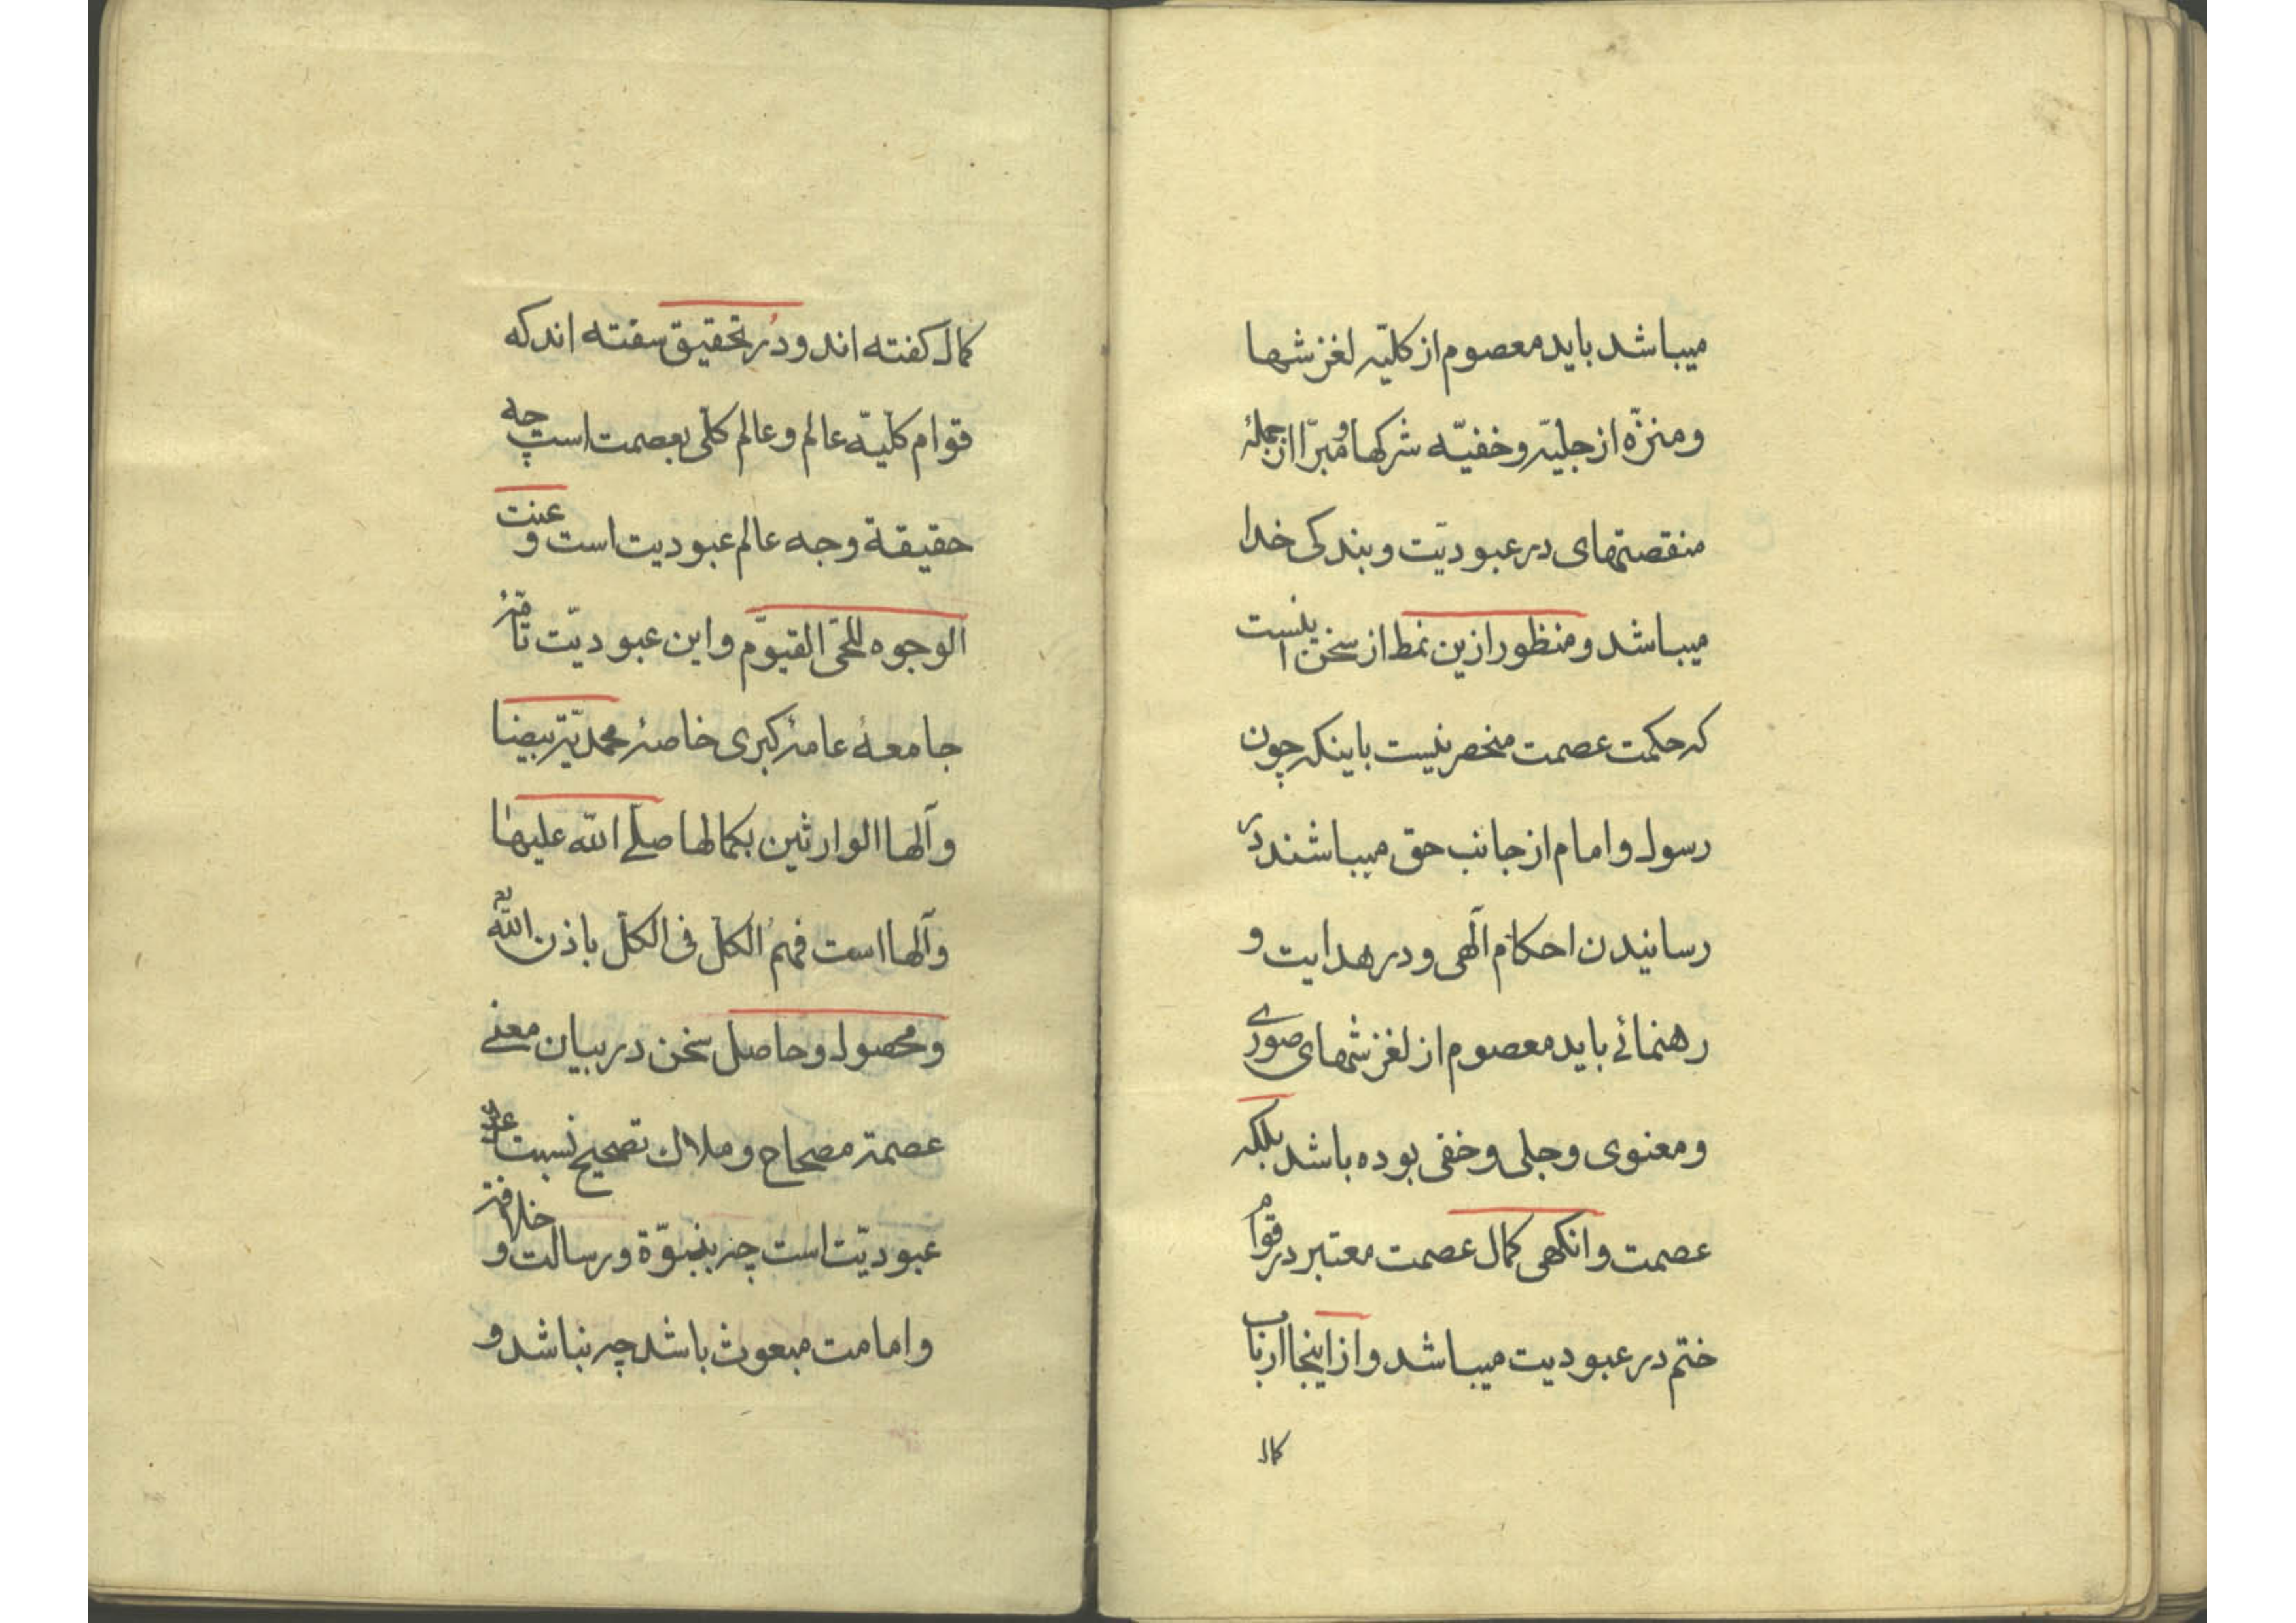 میباشد باید معصوم از کلیّه لغزشها
و منزّه از جلیّه و خفیّه شرکها و مبرّا از جملهٔ
منقصتهای در عبودیّت و بندکی خدا
میباشد و منظور ازین نمط از سخن اینست
که حکمت عصمت منحصر نیست باینکه چون
رسول و امام از جانب حق میباشند در
رسانیدن احکام آلهی و در هدایت و
رهنمائے باید معصوم از لغزشهای صوری
و معنوی و جلی و خفی بوده باشد بلکه
عصمت وانکهی کمال عصمت معتبر در قوام
ختم در عبودیت میباشد و از اینجا ارباب
کمال
کمال کفته اند و دُر تحقیق سفته اند که
قوام کلّیّه عالم و عالم کلّی بعصمت است چه
حقیقة وجه عالم عبودیت است و عنت
الوجوه للحیّ القیّوم و این عبودیّت تامّهٔ
جامعهٔ عامهٔ کبری خاصهٔ محمدیّه بیضا
و آلها الوارثین بکمالها صلّے اللّه علیها
و آلها است فهم الکلّ فی الکلّ باذن اللّه
و محصول و حاصل سخن در بیان معنے
عصمة مصحاح و ملاک تصحیح نسبت
عبودیّت است چه بنبوّة و رسالت و خلافة
و امامت مبعوث باشد چه نباشد و